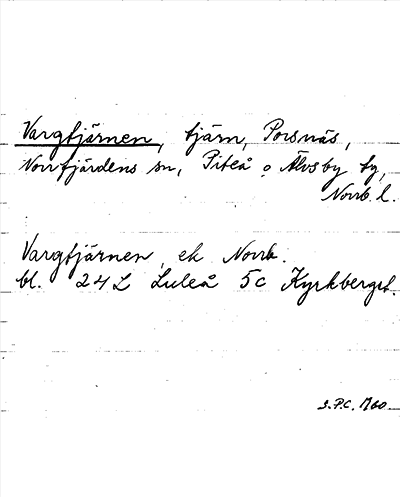 Vargtjärnen, tjärn, Porsnäs,
Norrfjärdens sn, Piteå o Älvsby tg,
Norrb. l.
Vargtjärnen, ek Norrb.
bl. 24 L Luleå 5c Kyrkberget.
S.P.C. 1760